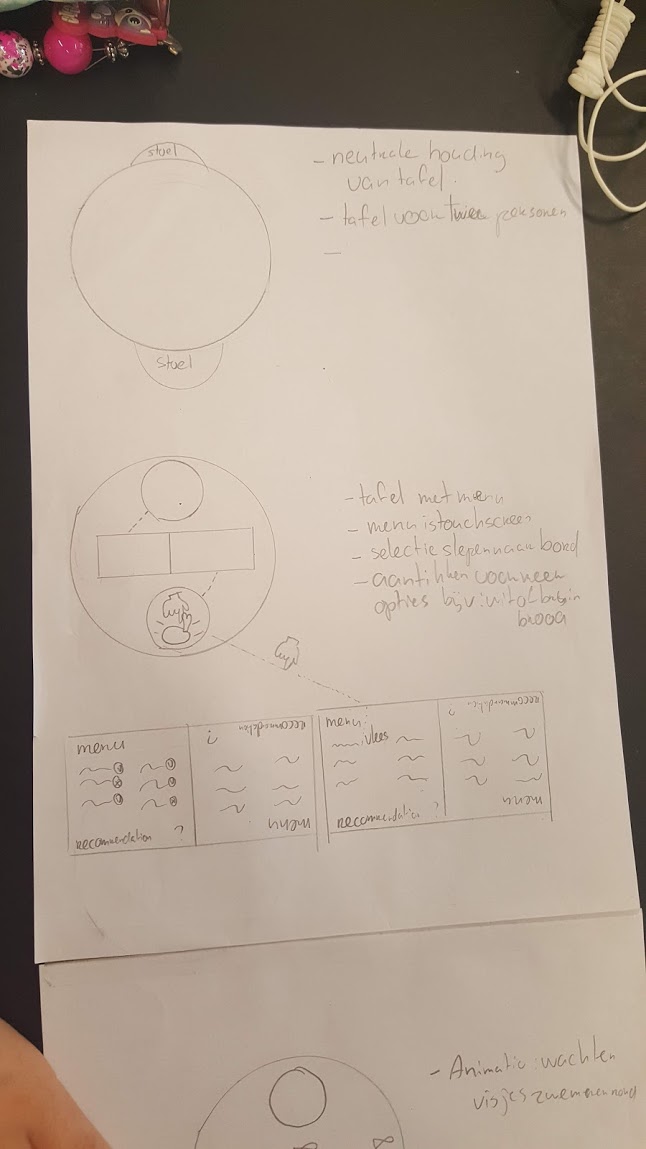 stoel
- neutrale houding
van tafel.
- tafel voor twee personen
-
stoel
- tafel met menu
- menu is touchscreen
- selectie slepen naar bord
- aantikken voor meer
opties bijv:
brood
menu
recommendation ?
recommendation ?
menu
menu:
vlees
recommendation ?
recommendation ?
menu
- Animatie: wachten
visjes zwemmen rond